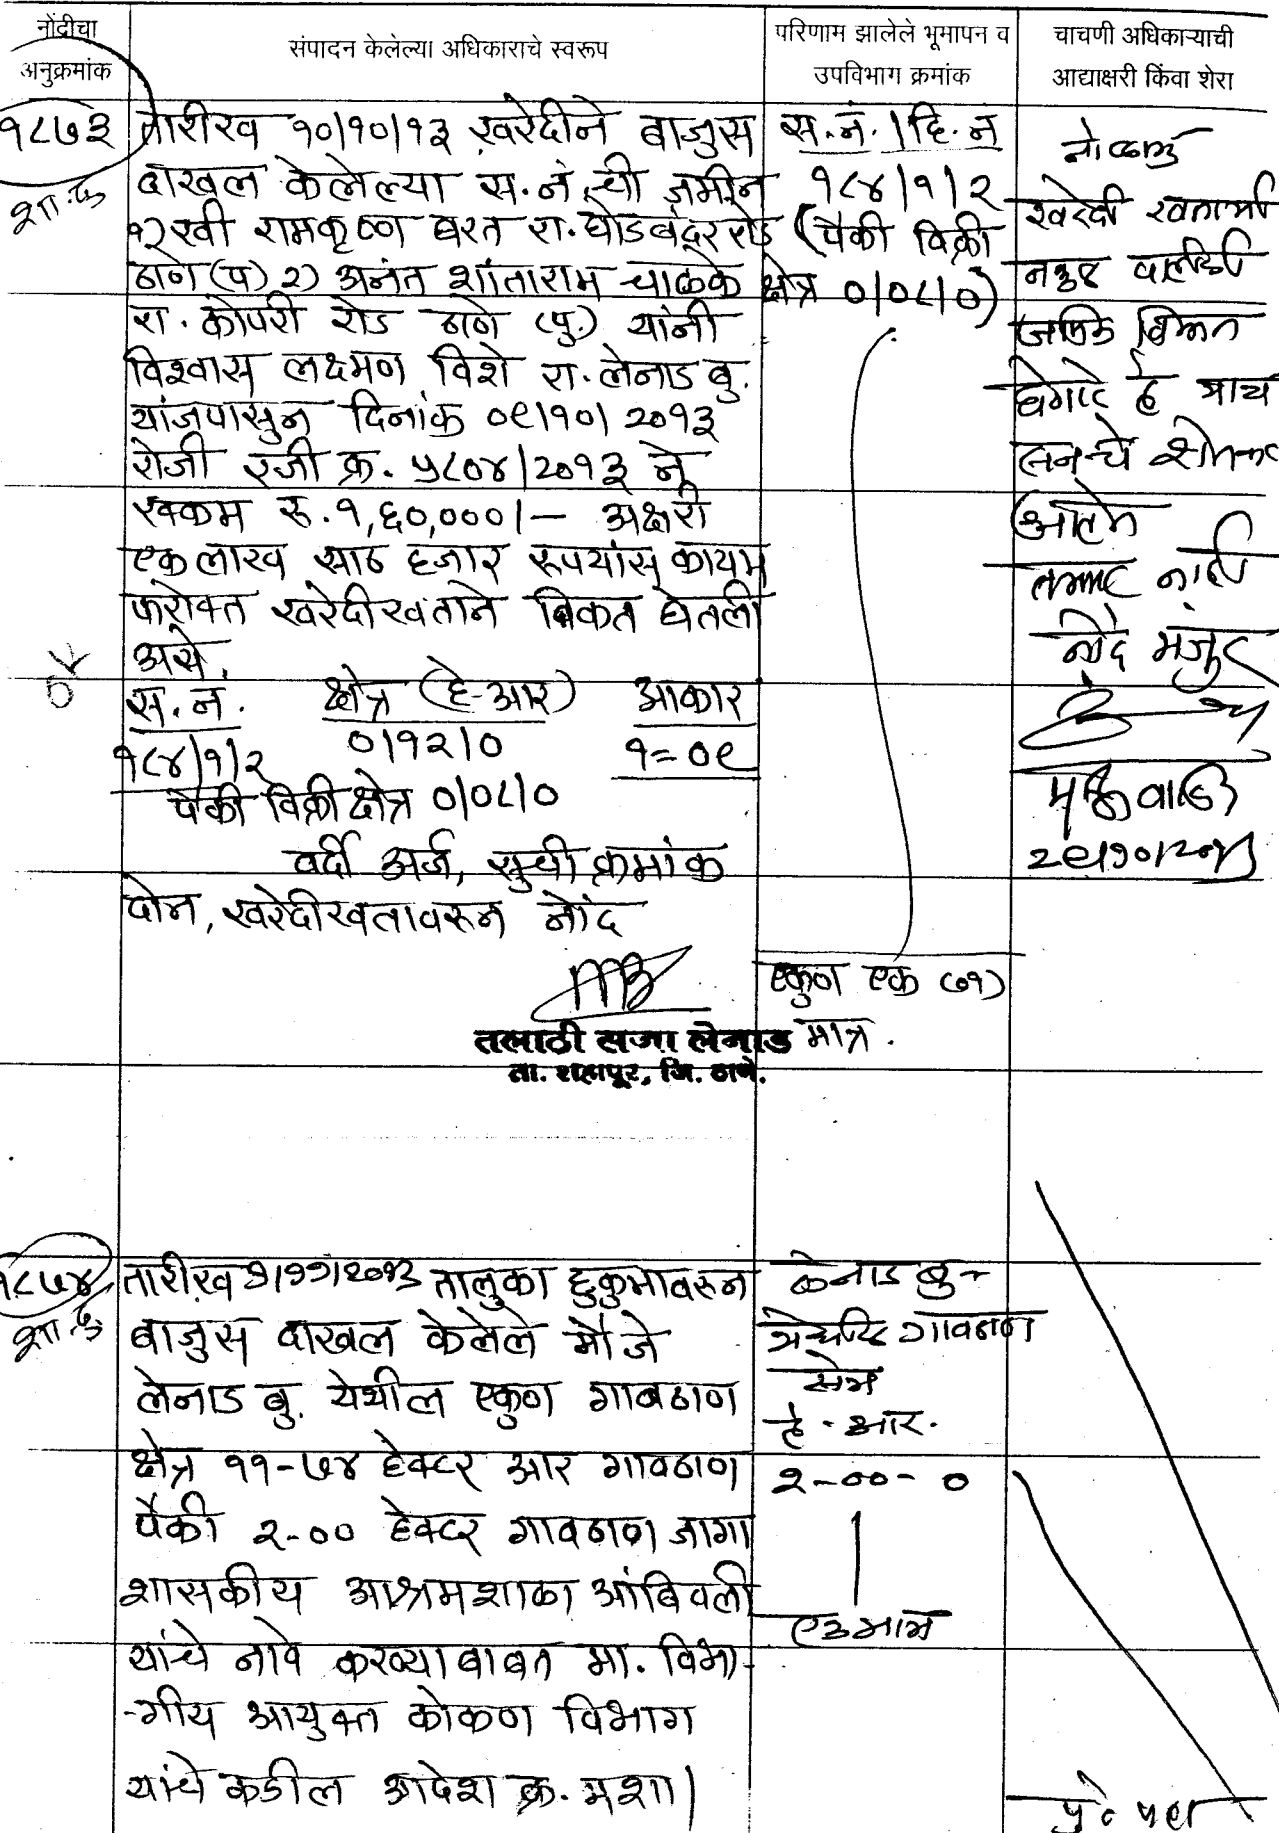 नोंदीचा
अनुक्रमांक
संपादन केलेल्या अधिकाराचे स्वरूप
परिणाम झालेले भूमापन व
उपविभाग क्रमांक
चाचणी अधिकाऱ्याची
आद्याक्षरी किंवा शेरा
१८७३
तारीख १०/१०/१३ खरेदीने बाजुस
दाखल केलेल्या स.नं.ची जमीन
१) रवी रामकृष्ण घरत रा.घोडबंदर रोड
ठाणे (प) २) अनंत शांताराम चाळके
रा. कोपरी रोड ठाणे (पु.) यांनी
विश्वास लक्ष्मण विशे रा.लेनाड बु.
यांजपासुन दिनांक ०९/१०/२०१३
रोजी रजी क्र. ५८०४/२०१३ ने
रक्कम रु.१,६०,०००/- अक्षरी
एक लाख साठ हजार रूपयांस कायम
फरोक्त खरेदीखताने विकत घेतली
असे.
स.नं. क्षेत्र (हे-आर) आकार
१८४/१/२ ०/१२/० १=०९
पैकी विक्री क्षेत्र ०/०८/०
वर्दी अर्ज, सुची क्रमांक
दोन, खरेदीखतावरुन नोंद
तलाठी सजा लेनाड
ता. शहापूर, जि. ठाणे.
स.नं./हि.नं
१८४/१/२
(पैकी विक्री
क्षेत्र ०/०८/०)
एकुण एक (०१)
मात्र.
खरेदी
नोंद मंजुर
१८७४
तारीख १/११/२०१३ तालुका हुकुमावरुन
बाजुस दाखल केलेले मौजे
लेनाड बु. येथील एकुण गावठाण
क्षेत्र ११-७४ हेक्टर आर गावठाण
पैकी २-०० हेक्टर गावठाण जागा
शासकीय आश्रमशाळा आंबिवली
यांचे नावे करण्याबाबत मा. विभा-
-गीय आयुक्त कोकण विभाग
यांचे कडील आदेश क्र. मशा/
लेनाड बु-
गावठाण
क्षेत्र
हे.आर.
२-००-०